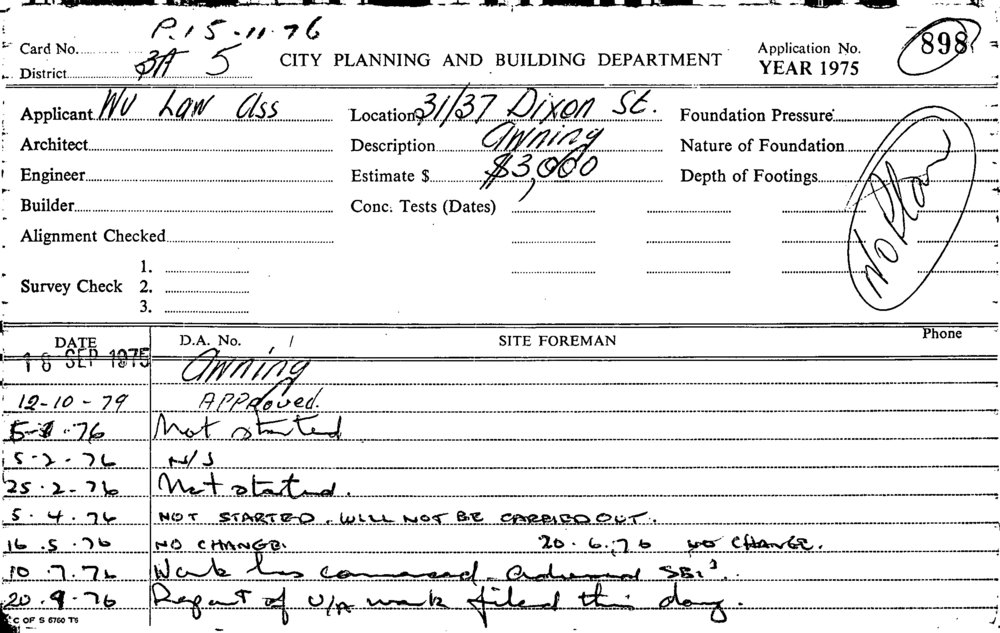 P.15-11-76
Card No. Application No. 898
District 3A 5 CITY PLANNING AND BUILDING DEPARTMENT YEAR 1975
Applicant Wu Law Ass Location 31/37 Dixon St. Foundation Pressure
Architect Description Awning Nature of Foundation
Engineer Estimate $ $3,000 Depth of Footings
Builder Conc. Tests (Dates)
No Plan
Alignment Checked
1.
Survey Check 2.
3.
DATE D.A. No. / SITE FOREMAN Phone
18 SEP 1975 Awning
12-10-79 APPRoved.
76 Not started
5-2-76 N/S
25.2-76 Not started.
5.4.76 NOT STARTED. WILL NOT BE CARRIED OUT.
16.5.76 NO CHANGE. 20.6.76 NO CHANGE.
10.7.76 Work has commenced
20.9.76 Report of U/A work filed this day.
C OF S 6760 T6